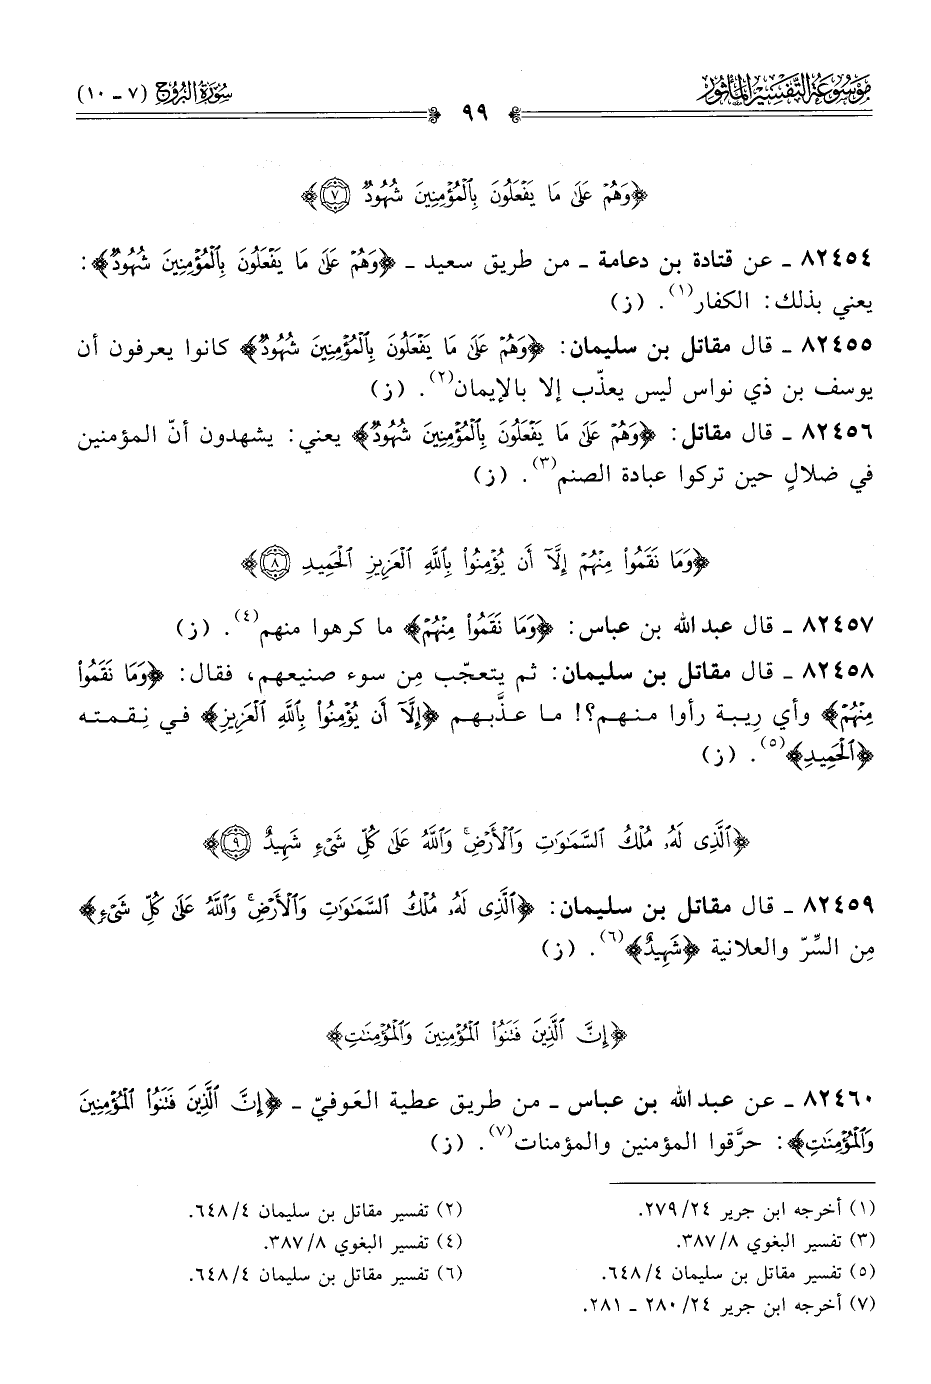 موسوعة التفسير المأثور
سورة البروج (٧ - ١٠)
٩٩
﴿وَهُمْ عَلَىٰ مَا يَفْعَلُونَ بِٱلْمُؤْمِنِينَ شُهُودٌ ٧﴾
٨٢٤٥٤ - عن قتادة بن دعامة - من طريق سعيد - ﴿وَهُمْ عَلَىٰ مَا يَفْعَلُونَ بِٱلْمُؤْمِنِينَ شُهُودٌ﴾:
يعني بذلك: الكفار(١). (ز)
٨٢٤٥٥ - قال مقاتل بن سليمان: ﴿وَهُمْ عَلَىٰ مَا يَفْعَلُونَ بِٱلْمُؤْمِنِينَ شُهُودٌ﴾ كانوا يعرفون أن
يوسف بن ذي نواس ليس يعذّب إلا بالإيمان(٢). (ز)
٨٢٤٥٦ - قال مقاتل: ﴿وَهُمْ عَلَىٰ مَا يَفْعَلُونَ بِٱلْمُؤْمِنِينَ شُهُودٌ﴾ يعني: يشهدون أنّ المؤمنين
في ضلالٍ حين تركوا عبادة الصنم(٣). (ز)
﴿وَمَا نَقَمُوا۟ مِنْهُمْ إِلَّآ أَن يُؤْمِنُوا۟ بِٱللَّهِ ٱلْعَزِيزِ ٱلْحَمِيدِ ٨﴾
٨٢٤٥٧ - قال عبد الله بن عباس: ﴿وَمَا نَقَمُوا۟ مِنْهُمْ﴾ ما كرهوا منهم(٤). (ز)
٨٢٤٥٨ - قال مقاتل بن سليمان: ثم يتعجّب مِن سوء صنيعهم، فقال: ﴿وَمَا نَقَمُوا۟
مِنْهُمْ﴾ وأي رِيبة رأوا منهم؟! ما عذَّبهم ﴿إِلَّآ أَن يُؤْمِنُوا۟ بِٱللَّهِ ٱلْعَزِيزِ﴾ في نِقمته
﴿ٱلْحَمِيدِ﴾(٥). (ز)
﴿ٱلَّذِى لَهُۥ مُلْكُ ٱلسَّمَٰوَٰتِ وَٱلْأَرْضِ ۚ وَٱللَّهُ عَلَىٰ كُلِّ شَىْءٍ شَهِيدٌ ٩﴾
٨٢٤٥٩ - قال مقاتل بن سليمان: ﴿ٱلَّذِى لَهُۥ مُلْكُ ٱلسَّمَٰوَٰتِ وَٱلْأَرْضِ ۚ وَٱللَّهُ عَلَىٰ كُلِّ شَىْءٍ﴾
مِن السِّرّ والعلانية ﴿شَهِيدٌ﴾(٦). (ز)
﴿إِنَّ ٱلَّذِينَ فَتَنُوا۟ ٱلْمُؤْمِنِينَ وَٱلْمُؤْمِنَٰتِ﴾
٨٢٤٦٠ - عن عبد الله بن عباس - من طريق عطية العَوفيّ - ﴿إِنَّ ٱلَّذِينَ فَتَنُوا۟ ٱلْمُؤْمِنِينَ
وَٱلْمُؤْمِنَٰتِ﴾: حرَّقوا المؤمنين والمؤمنات(٧). (ز)
(١) أخرجه ابن جرير ٢٤/ ٢٧٩.
(٢) تفسير مقاتل بن سليمان ٤/ ٦٤٨.
(٣) تفسير البغوي ٨/ ٣٨٧.
(٤) تفسير البغوي ٨/ ٣٨٧.
(٥) تفسير مقاتل بن سليمان ٤/ ٦٤٨.
(٦) تفسير مقاتل بن سليمان ٤/ ٦٤٨.
(٧) أخرجه ابن جرير ٢٤/ ٢٨٠ - ٢٨١.